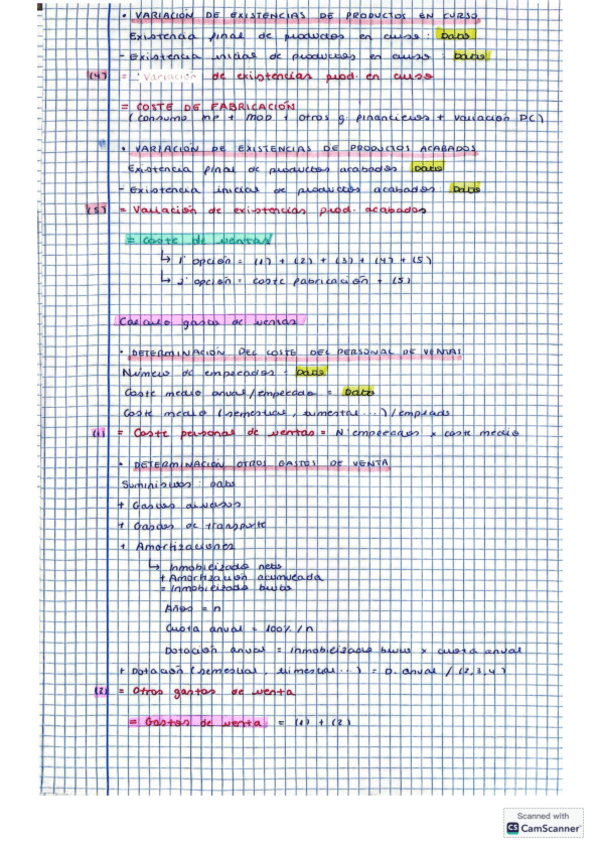 • VARIACIÓN DE EXISTENCIAS DE PRODUCTOS EN CURSO
Existencia final de productos en curso : Dato
- Existencia inicial de productos en curso : Dato
(4) = Variación de existencias prod. en curso
= COSTE DE FABRICACIÓN
(Consumo MP + MOD + otros g financieros + variación PC)
• VARIACIÓN DE EXISTENCIAS DE PRODUCTOS ACABADOS
Existencia final de productos acabados Dato
- Existencia inicial de productos acabados: Dato
(5) = Variación de existencias prod. acabados
= Coste de ventas
↳ 1ª opción = (1) + (2) + (3) + (4) + (5)
↳ 2ª opción = coste fabricación + (5)
Cálculo gastos de ventas
• DETERMINACIÓN DEL COSTE DEL PERSONAL DE VENTAS
Número de empleados = Dato
Coste medio anual/empleado = Dato
Coste medio (semestral, trimestral...)/empleado
(1) = Coste personal de ventas = Nº empleados x coste medio
• DETERMINACIÓN OTROS GASTOS DE VENTA
Suministros : Dato
+ Gastos diversos
+ Gastos de transporte
+ Amortizaciones
↳ Inmobilizado neto
+ Amortización acumulada
= Inmobilizado bruto
Años = n
Cuota anual = 100% / n
Dotación anual = Inmobilizado bruto x cuota anual
+ Dotación (semestral, trimestral...) = D. anual / (2,3,4)
(2) = Otros gastos de venta
= Gastos de venta = (1) + (2)
Scanned with
CS CamScanner